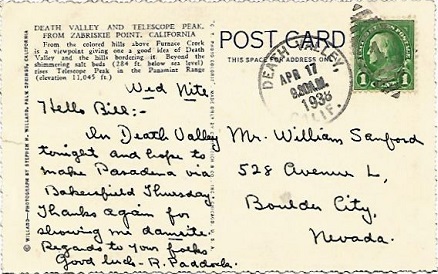 DEATH VALLEY AND TELESCOPE PEAK,
FROM ZABRISKIE POINT, CALIFORNIA
From the colored hills above Furnace Creek
is a viewpoint giving one a good idea of Death
Valley and the hills bordering it. Beyond the
shimmering salt beds (284 ft. below sea level)
rises Telescope Peak in the Panamint Range
(elevation 11,045 ft.)
Wed Nite.
Hello Bill:-
In Death Valley
tonight and hope to
make Pasadena via
Bakersfield Thursday.
Thanks again for
showing me
Regards to your folks
Good luck - R. Paddock.
© WILLARD—PHOTOGRAPH BY STEPHEN H. WILLARD, PALM SPRINGS, CALIFORNIA
POST CARD
THIS SPACE FOR ADDRESS ONLY
DEATH VALLEY,
APR 17
1938
CALIF.
1 CENT 1
Mr. William Sanford
528 Avenue L,
Boulder City,
Nevada.